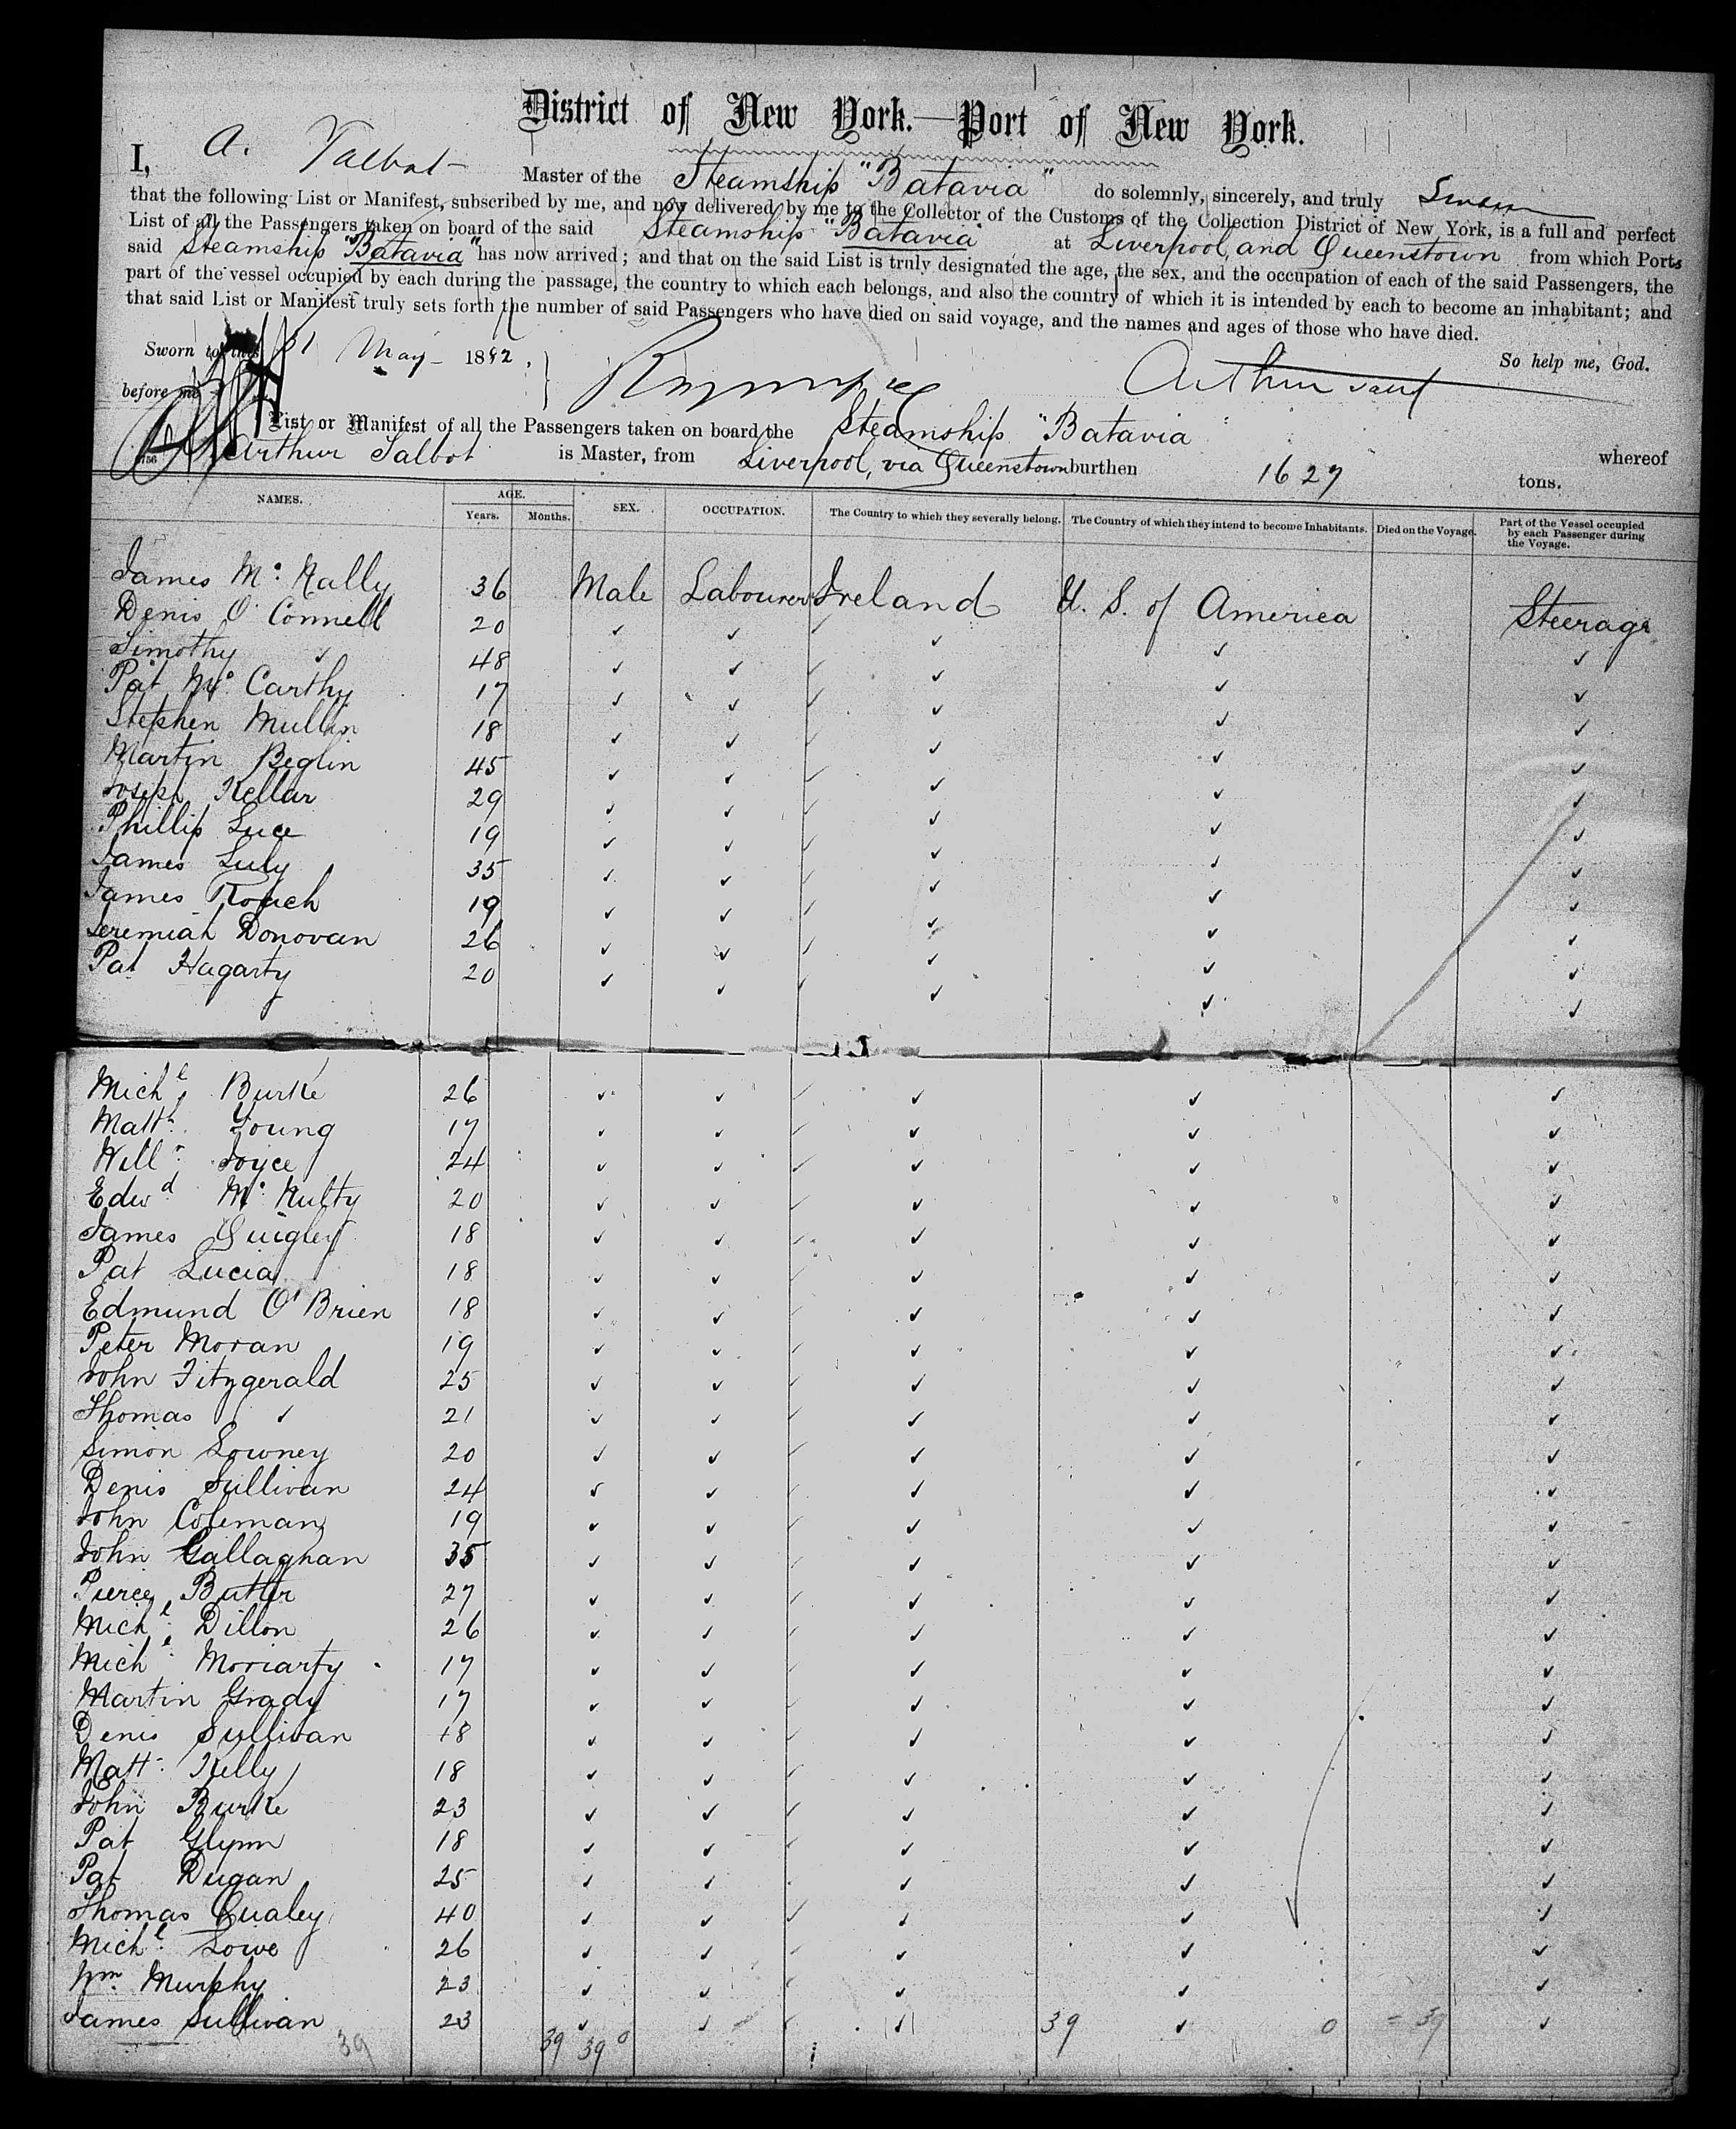 District of New York.—Port of New York.
I, A. Talbot Master of the Steamship "Batavia" do solemnly, sincerely, and truly Swear
that the following List or Manifest, subscribed by me, and now delivered by me to the Collector of the Customs of the Collection District of New York, is a full and perfect
List of all the Passengers taken on board of the said Steamship "Batavia" at Liverpool, and Queenstown from which Ports
said Steamship "Batavia" has now arrived; and that on the said List is truly designated the age, the sex, and the occupation of each of the said Passengers, the
part of the vessel occupied by each during the passage, the country to which each belongs, and also the country of which it is intended by each to become an inhabitant; and
that said List or Manifest truly sets forth the number of said Passengers who have died on said voyage, and the names and ages of those who have died.
So help me, God.
Sworn to this 1 May 1882.
before me
Arthur
List or Manifest of all the Passengers taken on board the Steamship "Batavia" whereof
Arthur Talbot is Master, from Liverpool, via Queenstown burthen 1627 tons.
NAMES. AGE. Years. Months. SEX. OCCUPATION. The Country to which they severally belong. The Country of which they intend to become Inhabitants. Died on the Voyage. Part of the Vessel occupied by each Passenger during the Voyage.
James Mc Nally 36 Male Labourer Ireland U. S. of America Steerage
Denis O'Connell 20 ✓ ✓ ✓ ✓ ✓ ✓
Timothy ✓ 48 ✓ ✓ ✓ ✓ ✓ ✓
Pat Mc Carthy 17 ✓ ✓ ✓ ✓ ✓ ✓
Stephen Mullin 18 ✓ ✓ ✓ ✓ ✓ ✓
Martin Beglin 45 ✓ ✓ ✓ ✓ ✓ ✓
Joseph Kellar 29 ✓ ✓ ✓ ✓ ✓ ✓
Phillip Luce 19 ✓ ✓ ✓ ✓ ✓ ✓
James Luly 35 ✓ ✓ ✓ ✓ ✓ ✓
James Roach 19 ✓ ✓ ✓ ✓ ✓ ✓
Jeremiah Donovan 26 ✓ ✓ ✓ ✓ ✓ ✓
Pat Hagarty 20 ✓ ✓ ✓ ✓ ✓ ✓
Michl Burke 26 ✓ ✓ ✓ ✓ ✓ ✓
Matt. Young 17 ✓ ✓ ✓ ✓ ✓ ✓
Willm Joyce 24 ✓ ✓ ✓ ✓ ✓ ✓
Edwd Mc Nulty 20 ✓ ✓ ✓ ✓ ✓ ✓
James Quigley 18 ✓ ✓ ✓ ✓ ✓ ✓
Pat Lucia 18 ✓ ✓ ✓ ✓ ✓ ✓
Edmund O'Brien 18 ✓ ✓ ✓ ✓ ✓ ✓
Peter Moran 19 ✓ ✓ ✓ ✓ ✓ ✓
John Fitzgerald 25 ✓ ✓ ✓ ✓ ✓ ✓
Thomas ✓ 21 ✓ ✓ ✓ ✓ ✓ ✓
Simon Lowney 20 ✓ ✓ ✓ ✓ ✓ ✓
Denis Sullivan 24 ✓ ✓ ✓ ✓ ✓ ✓
John Coleman 19 ✓ ✓ ✓ ✓ ✓ ✓
John Gallaghan 35 ✓ ✓ ✓ ✓ ✓ ✓
Pierce Butler 27 ✓ ✓ ✓ ✓ ✓ ✓
Michl Dillon 26 ✓ ✓ ✓ ✓ ✓ ✓
Michl Moriarty 17 ✓ ✓ ✓ ✓ ✓ ✓
Martin Grady 17 ✓ ✓ ✓ ✓ ✓ ✓
Denis Sullivan 18 ✓ ✓ ✓ ✓ ✓ ✓
Matt. Kelly 18 ✓ ✓ ✓ ✓ ✓ ✓
John Burke 23 ✓ ✓ ✓ ✓ ✓ ✓
Pat Glynn 18 ✓ ✓ ✓ ✓ ✓ ✓
Pat Dugan 25 ✓ ✓ ✓ ✓ ✓ ✓
Thomas Qualey 40 ✓ ✓ ✓ ✓ ✓ ✓
Michl Lowe 26 ✓ ✓ ✓ ✓ ✓ ✓
Wm. Murphy 23 ✓ ✓ ✓ ✓ ✓ ✓
James Sullivan 23 ✓ ✓ ✓ ✓ 39 ✓ 0 = 39 ✓
39 39 39 0